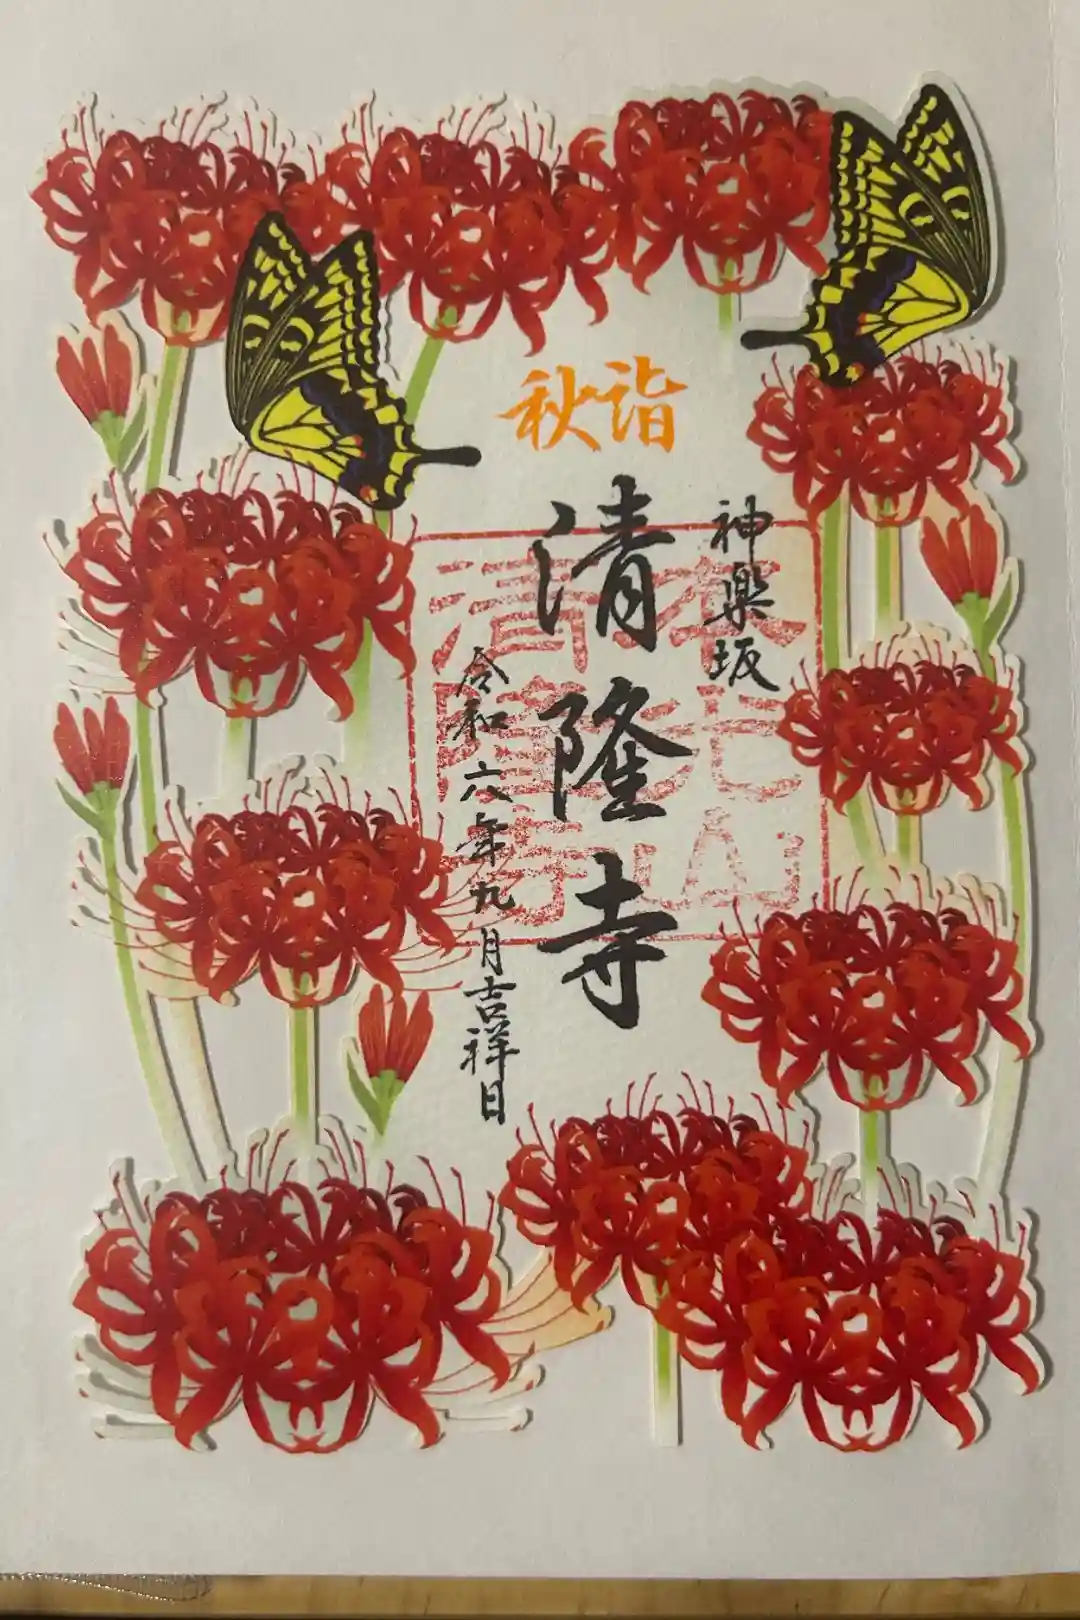 秋詣
神楽坂
清隆寺
令和六年九月吉祥日
光山
清隆寺